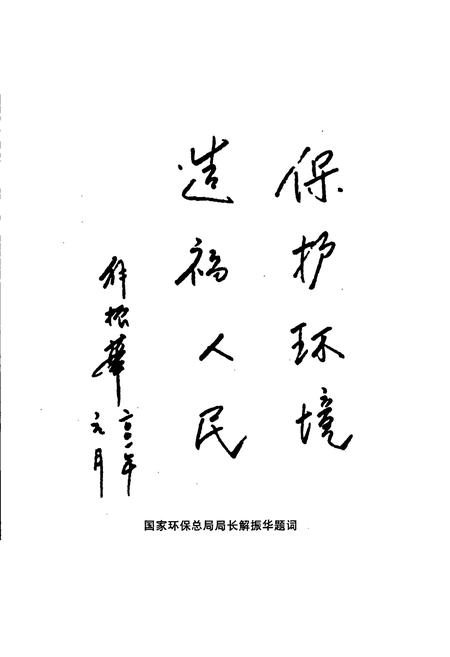 保护环境
造福人民
解振華
二〇〇一年
元月
国家环保总局局长解振华题词